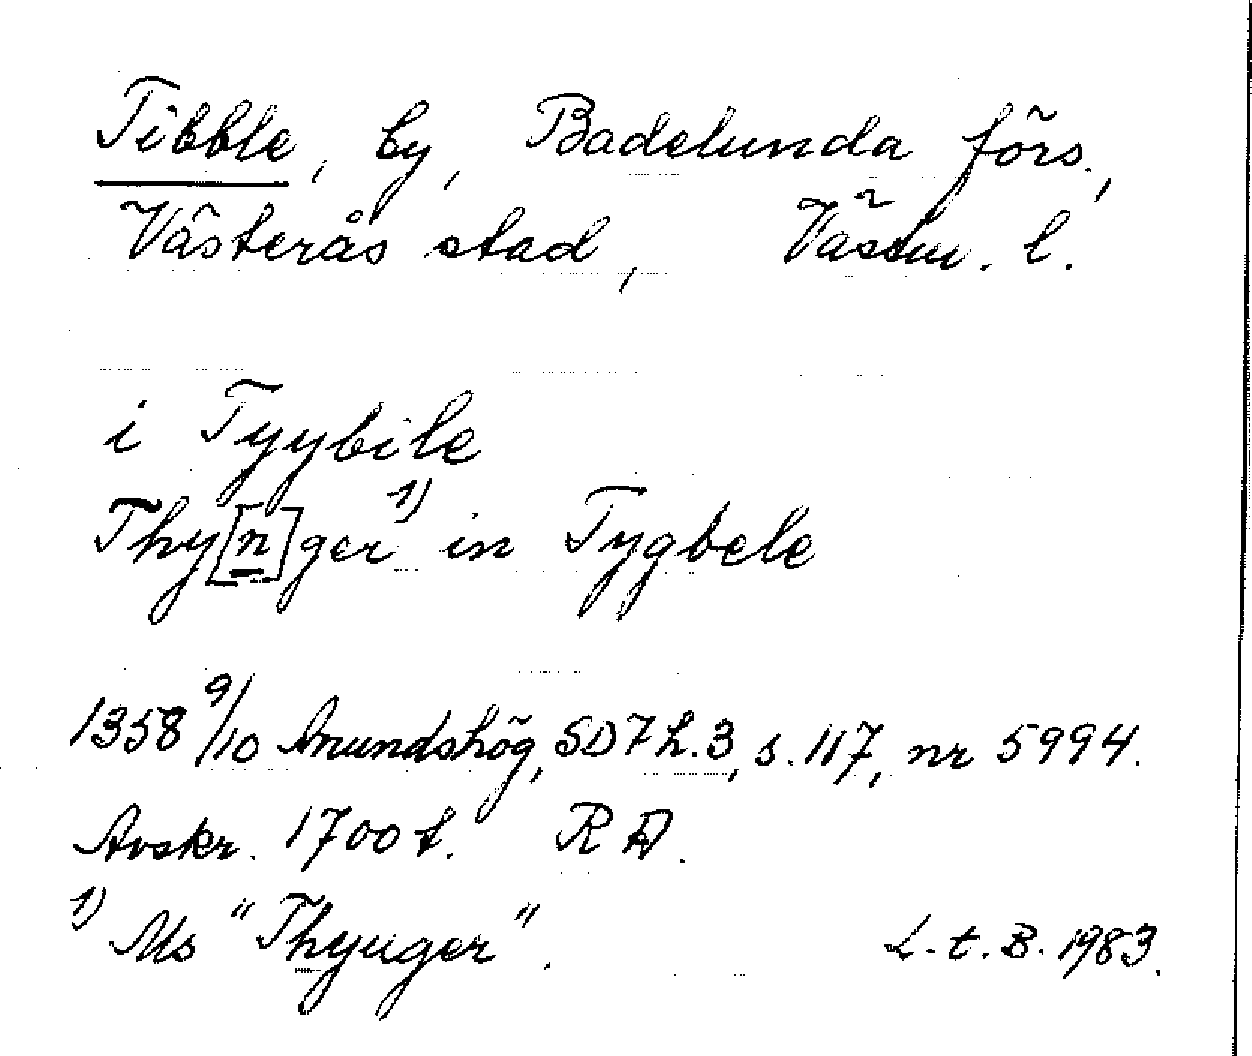 Tibble, by, Badelunda förs.,
Västerås stad, Västm. l.
i Tyybile
Thy[n]ger 1) in Tygbele
1358 9/10 Anundshög, SD7 h.3, s. 117, nr 5994.
Avskr. 1700 t. RA.
1) Ms "Thyuger".
L. t. B. 1983.